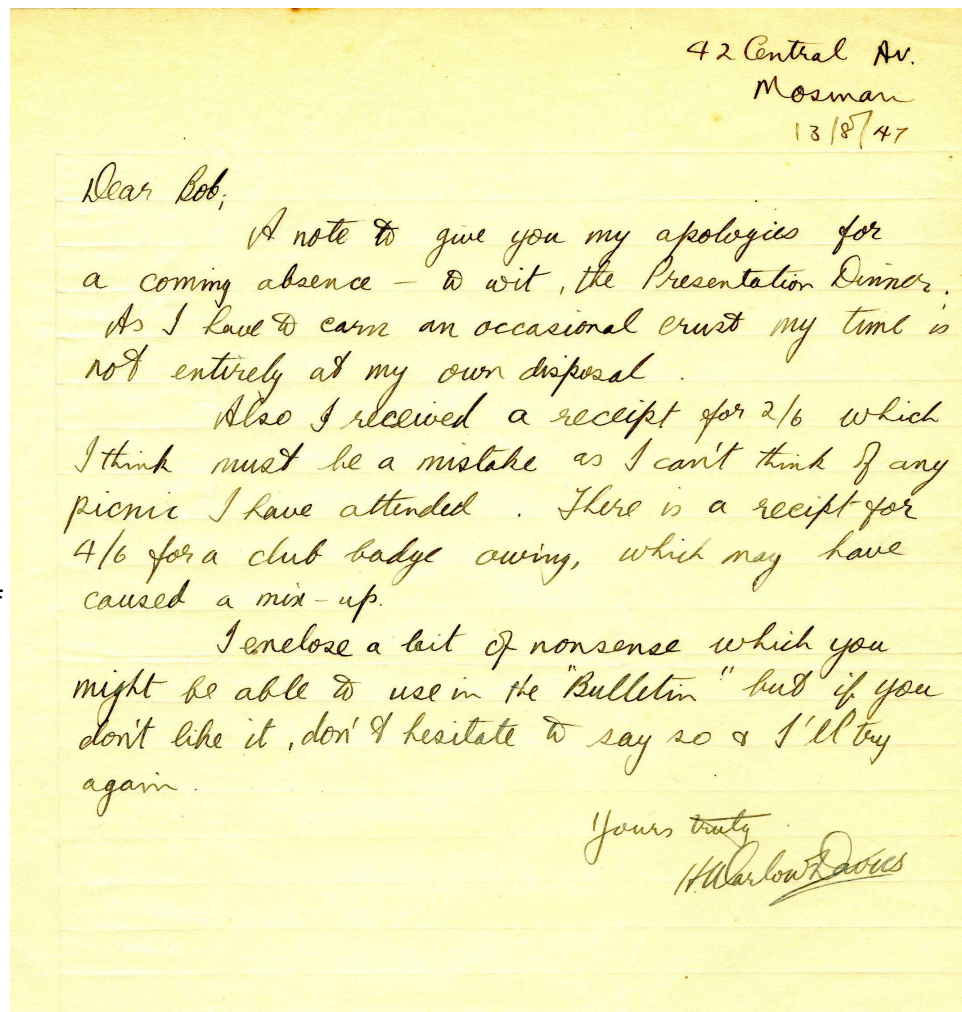 42 Central Av.
Mosman
13/8/47
Dear Bob,
A note to give you my apologies for
a coming absence – to wit, the Presentation Dinner.
As I have to earn an occasional crust my time is
not entirely at my own disposal.
Also I received a receipt for 2/6 which
I think must be a mistake as I can't think of any
picnic I have attended. There is a receipt for
4/6 for a club badge owing, which may have
caused a mix-up.
I enclose a bit of nonsense which you
might be able to use in the "Bulletin" but if you
don't like it, don't hesitate to say so & I'll try
again.
Yours truly
H Warlow Davies